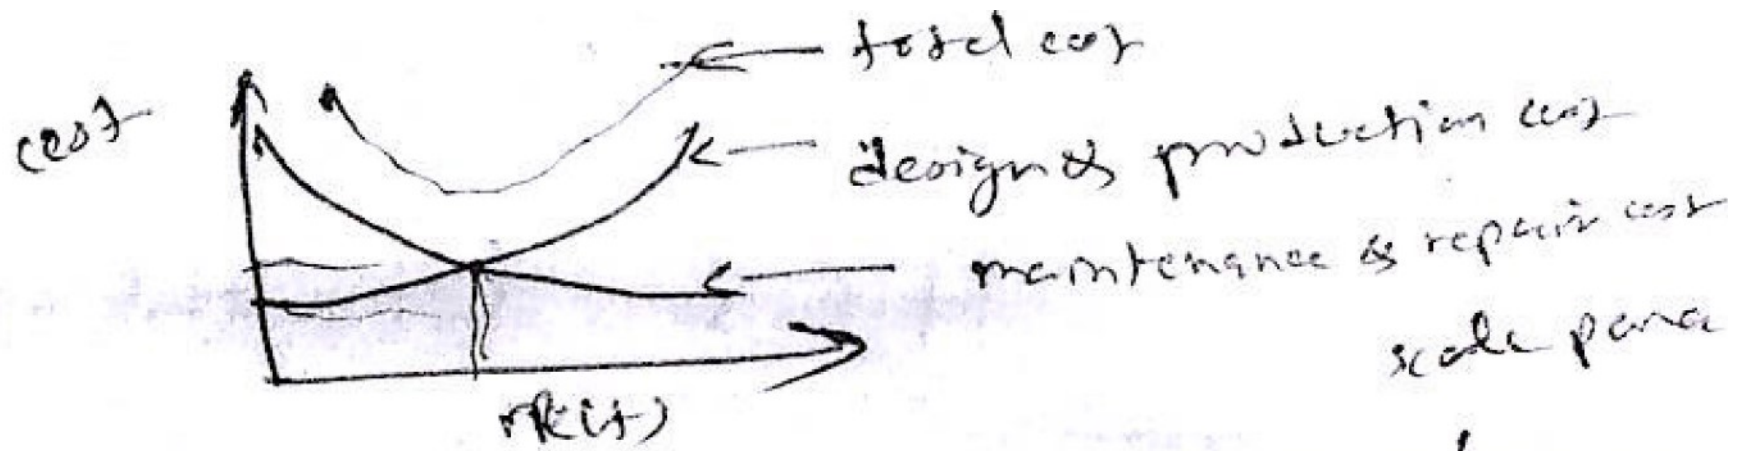 total cost
cost
design & production cost
maintenance & repair cost
scale para
R(t)